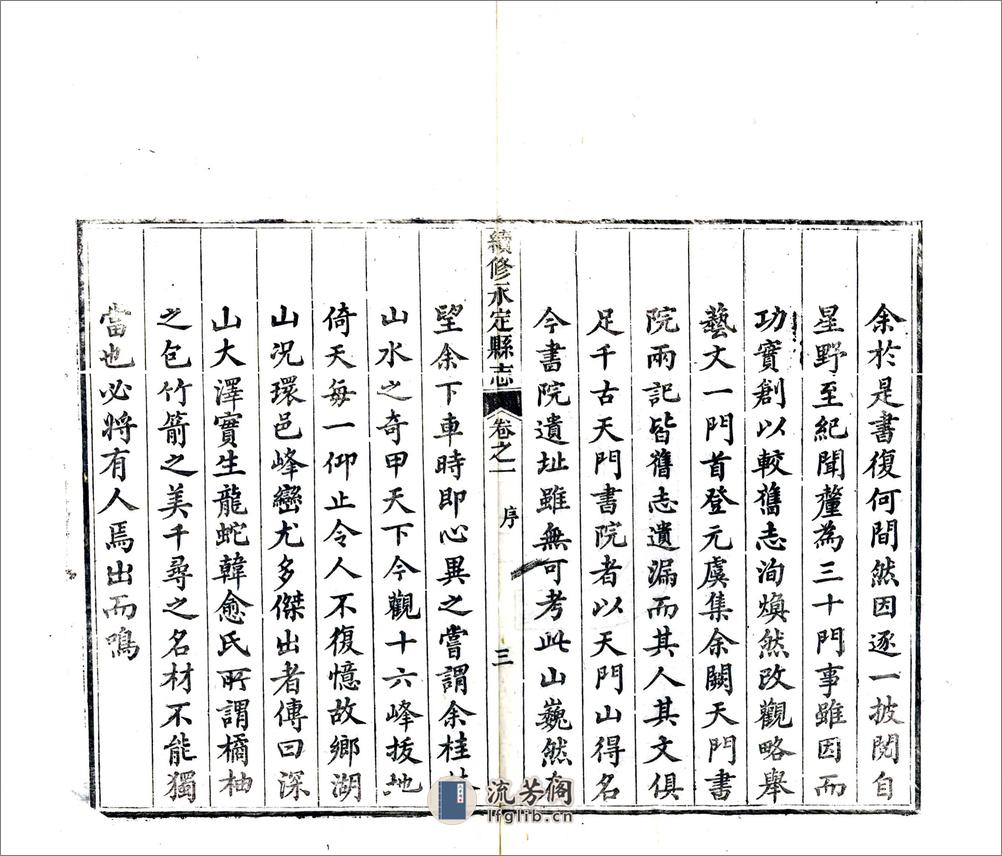 余於是書復何間然因逐一披閱自
星野至紀聞釐為三十門事雖因而
功實創以較舊志洵煥然改觀略舉
藝文一門首登元虞集余闕天門書
院兩記皆舊志遺漏而其人其文俱
足千古天門書院者以天門山得名
今書院遺址雖無可考此山巍然在
續修永定縣志 卷之一 序 三
望余下車時即心異之嘗謂余桂林
山水之奇甲天下今觀十六峰拔地
倚天每一仰止令人不復憶故鄉湖
山況環邑峰巒尤多傑出者傳曰深
山大澤實生龍蛇韓愈氏所謂橘柚
之包竹箭之美千尋之名材不能獨
當也必將有人焉出而鳴
流芳阁
lfglib.cn